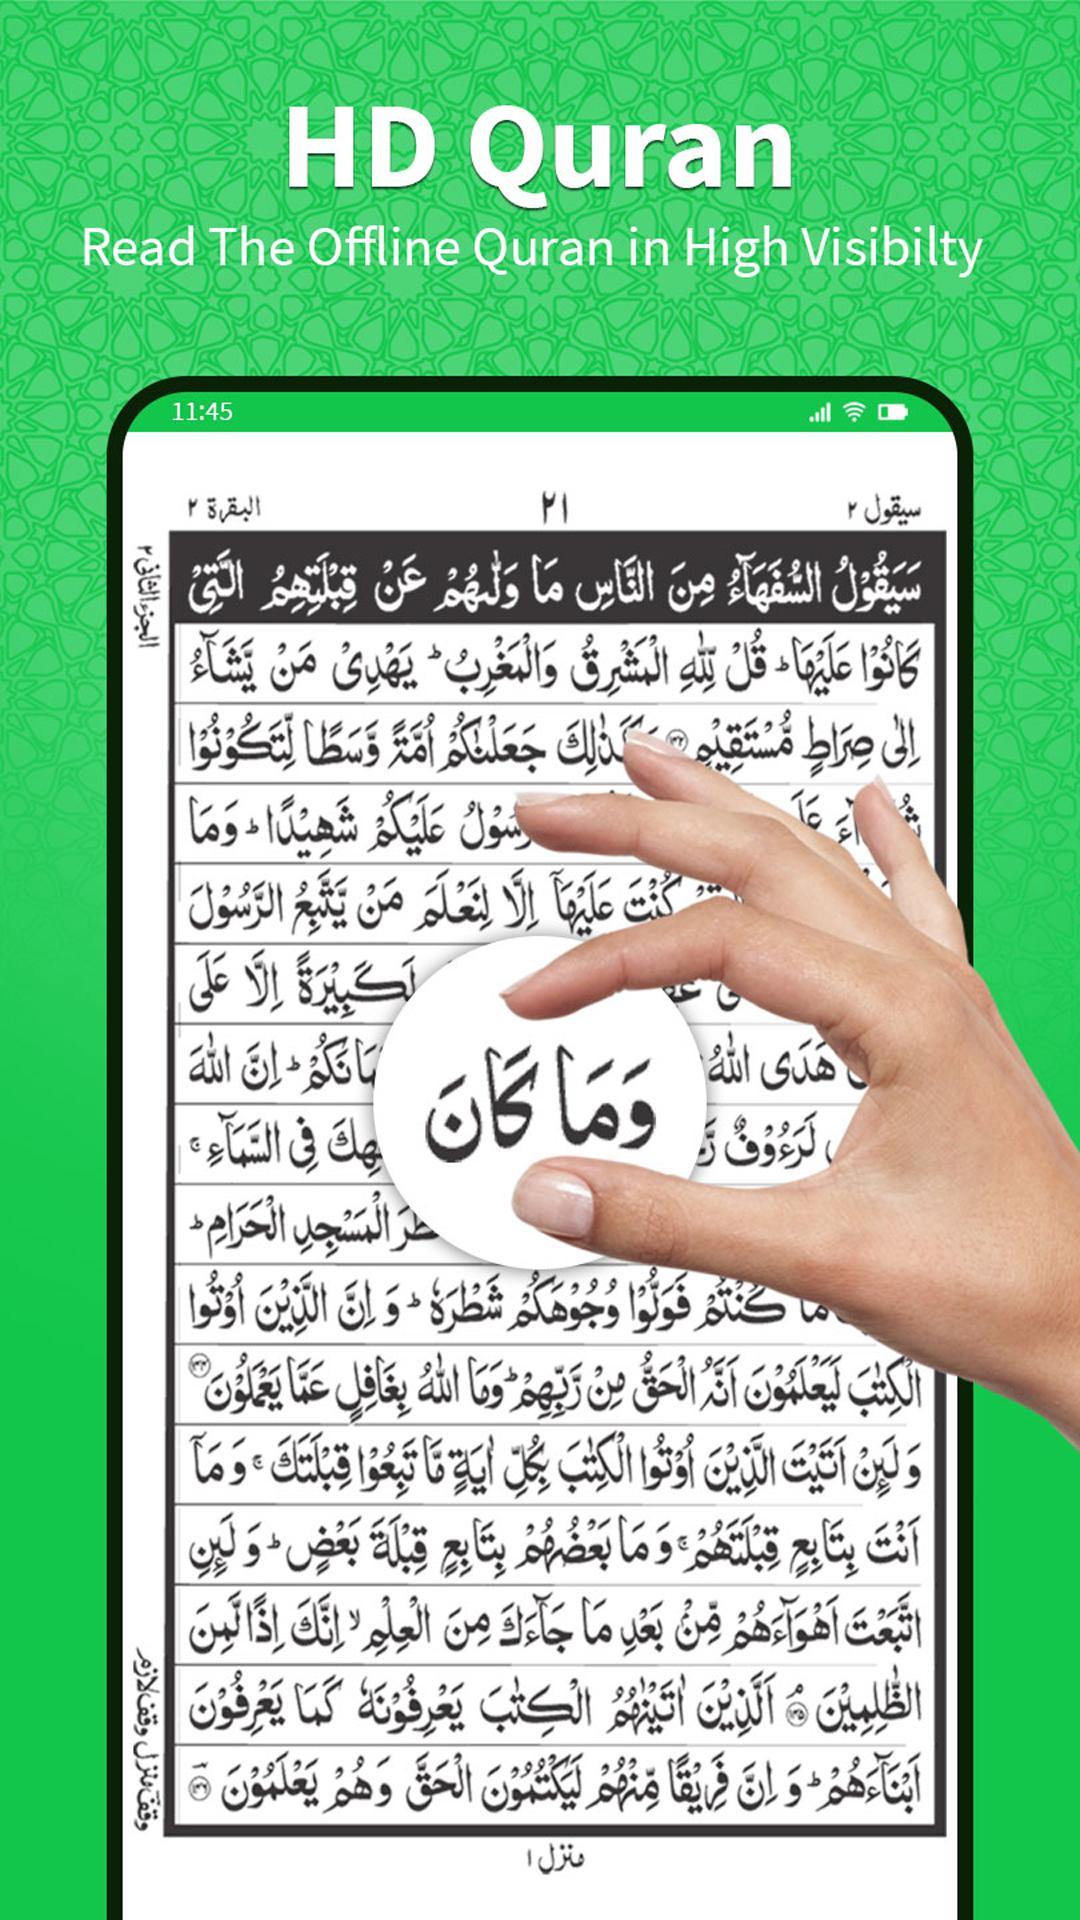 HD Quran
Read The Offline Quran in High Visibilty
11:45
سيقول ٢
٢١
البقرة ٢
الجزء الثانی ٢
سَيَقُوْلُ السُّفَهَآءُ مِنَ النَّاسِ مَا وَلّٰىهُمْ عَنْ قِبْلَتِهِمُ الَّتِىْ
كَانُوْا عَلَيْهَا ؕ قُلْ لِّلّٰهِ الْمَشْرِقُ وَالْمَغْرِبُ ؕ يَهْدِىْ مَنْ يَّشَآءُ
اِلٰى صِرَاطٍ مُّسْتَقِيْمٍ ۝ وَكَذٰلِكَ جَعَلْنٰكُمْ اُمَّةً وَّسَطًا لِّتَكُوْنُوْا
عَلَيْكُمْ شَهِيْدًا ؕ وَمَا
كُنْتَ عَلَيْهَآ اِلَّا لِنَعْلَمَ مَنْ يَّتَّبِعُ الرَّسُوْلَ
لَكَبِيْرَةً اِلَّا عَلَى
هَدَى اللّٰهُ
اِنَّ اللّٰهَ
وَمَا كَانَ
لَرَءُوْفٌ
فِى السَّمَآءِ ۚ
الْمَسْجِدِ الْحَرَامِ ؕ
مَا كُنْتُمْ فَوَلُّوْا وُجُوْهَكُمْ شَطْرَهٗ ؕ وَ اِنَّ الَّذِيْنَ اُوْتُوا
الْكِتٰبَ لَيَعْلَمُوْنَ اَنَّهُ الْحَقُّ مِنْ رَّبِّهِمْ ؕ وَمَا اللّٰهُ بِغَافِلٍ عَمَّا يَعْمَلُوْنَ ۝
وَ لَىِٕنْ اَتَيْتَ الَّذِيْنَ اُوْتُوا الْكِتٰبَ بِكُلِّ اٰيَةٍ مَّا تَبِعُوْا قِبْلَتَكَ ۚ وَ مَآ
اَنْتَ بِتَابِعٍ قِبْلَتَهُمْ ۚ وَ مَا بَعْضُهُمْ بِتَابِعٍ قِبْلَةَ بَعْضٍ ؕ وَ لَىِٕنِ
اتَّبَعْتَ اَهْوَآءَهُمْ مِّنْۢ بَعْدِ مَا جَآءَكَ مِنَ الْعِلْمِ ۙ اِنَّكَ اِذًا لَّمِنَ
الظّٰلِمِيْنَ ۝١٤٥ اَلَّذِيْنَ اٰتَيْنٰهُمُ الْكِتٰبَ يَعْرِفُوْنَهٗ كَمَا يَعْرِفُوْنَ
اَبْنَآءَهُمْ ؕ وَ اِنَّ فَرِيْقًا مِّنْهُمْ لَيَكْتُمُوْنَ الْحَقَّ وَهُمْ يَعْلَمُوْنَ ۝
وقف منزل وقف لازم
منزل ١